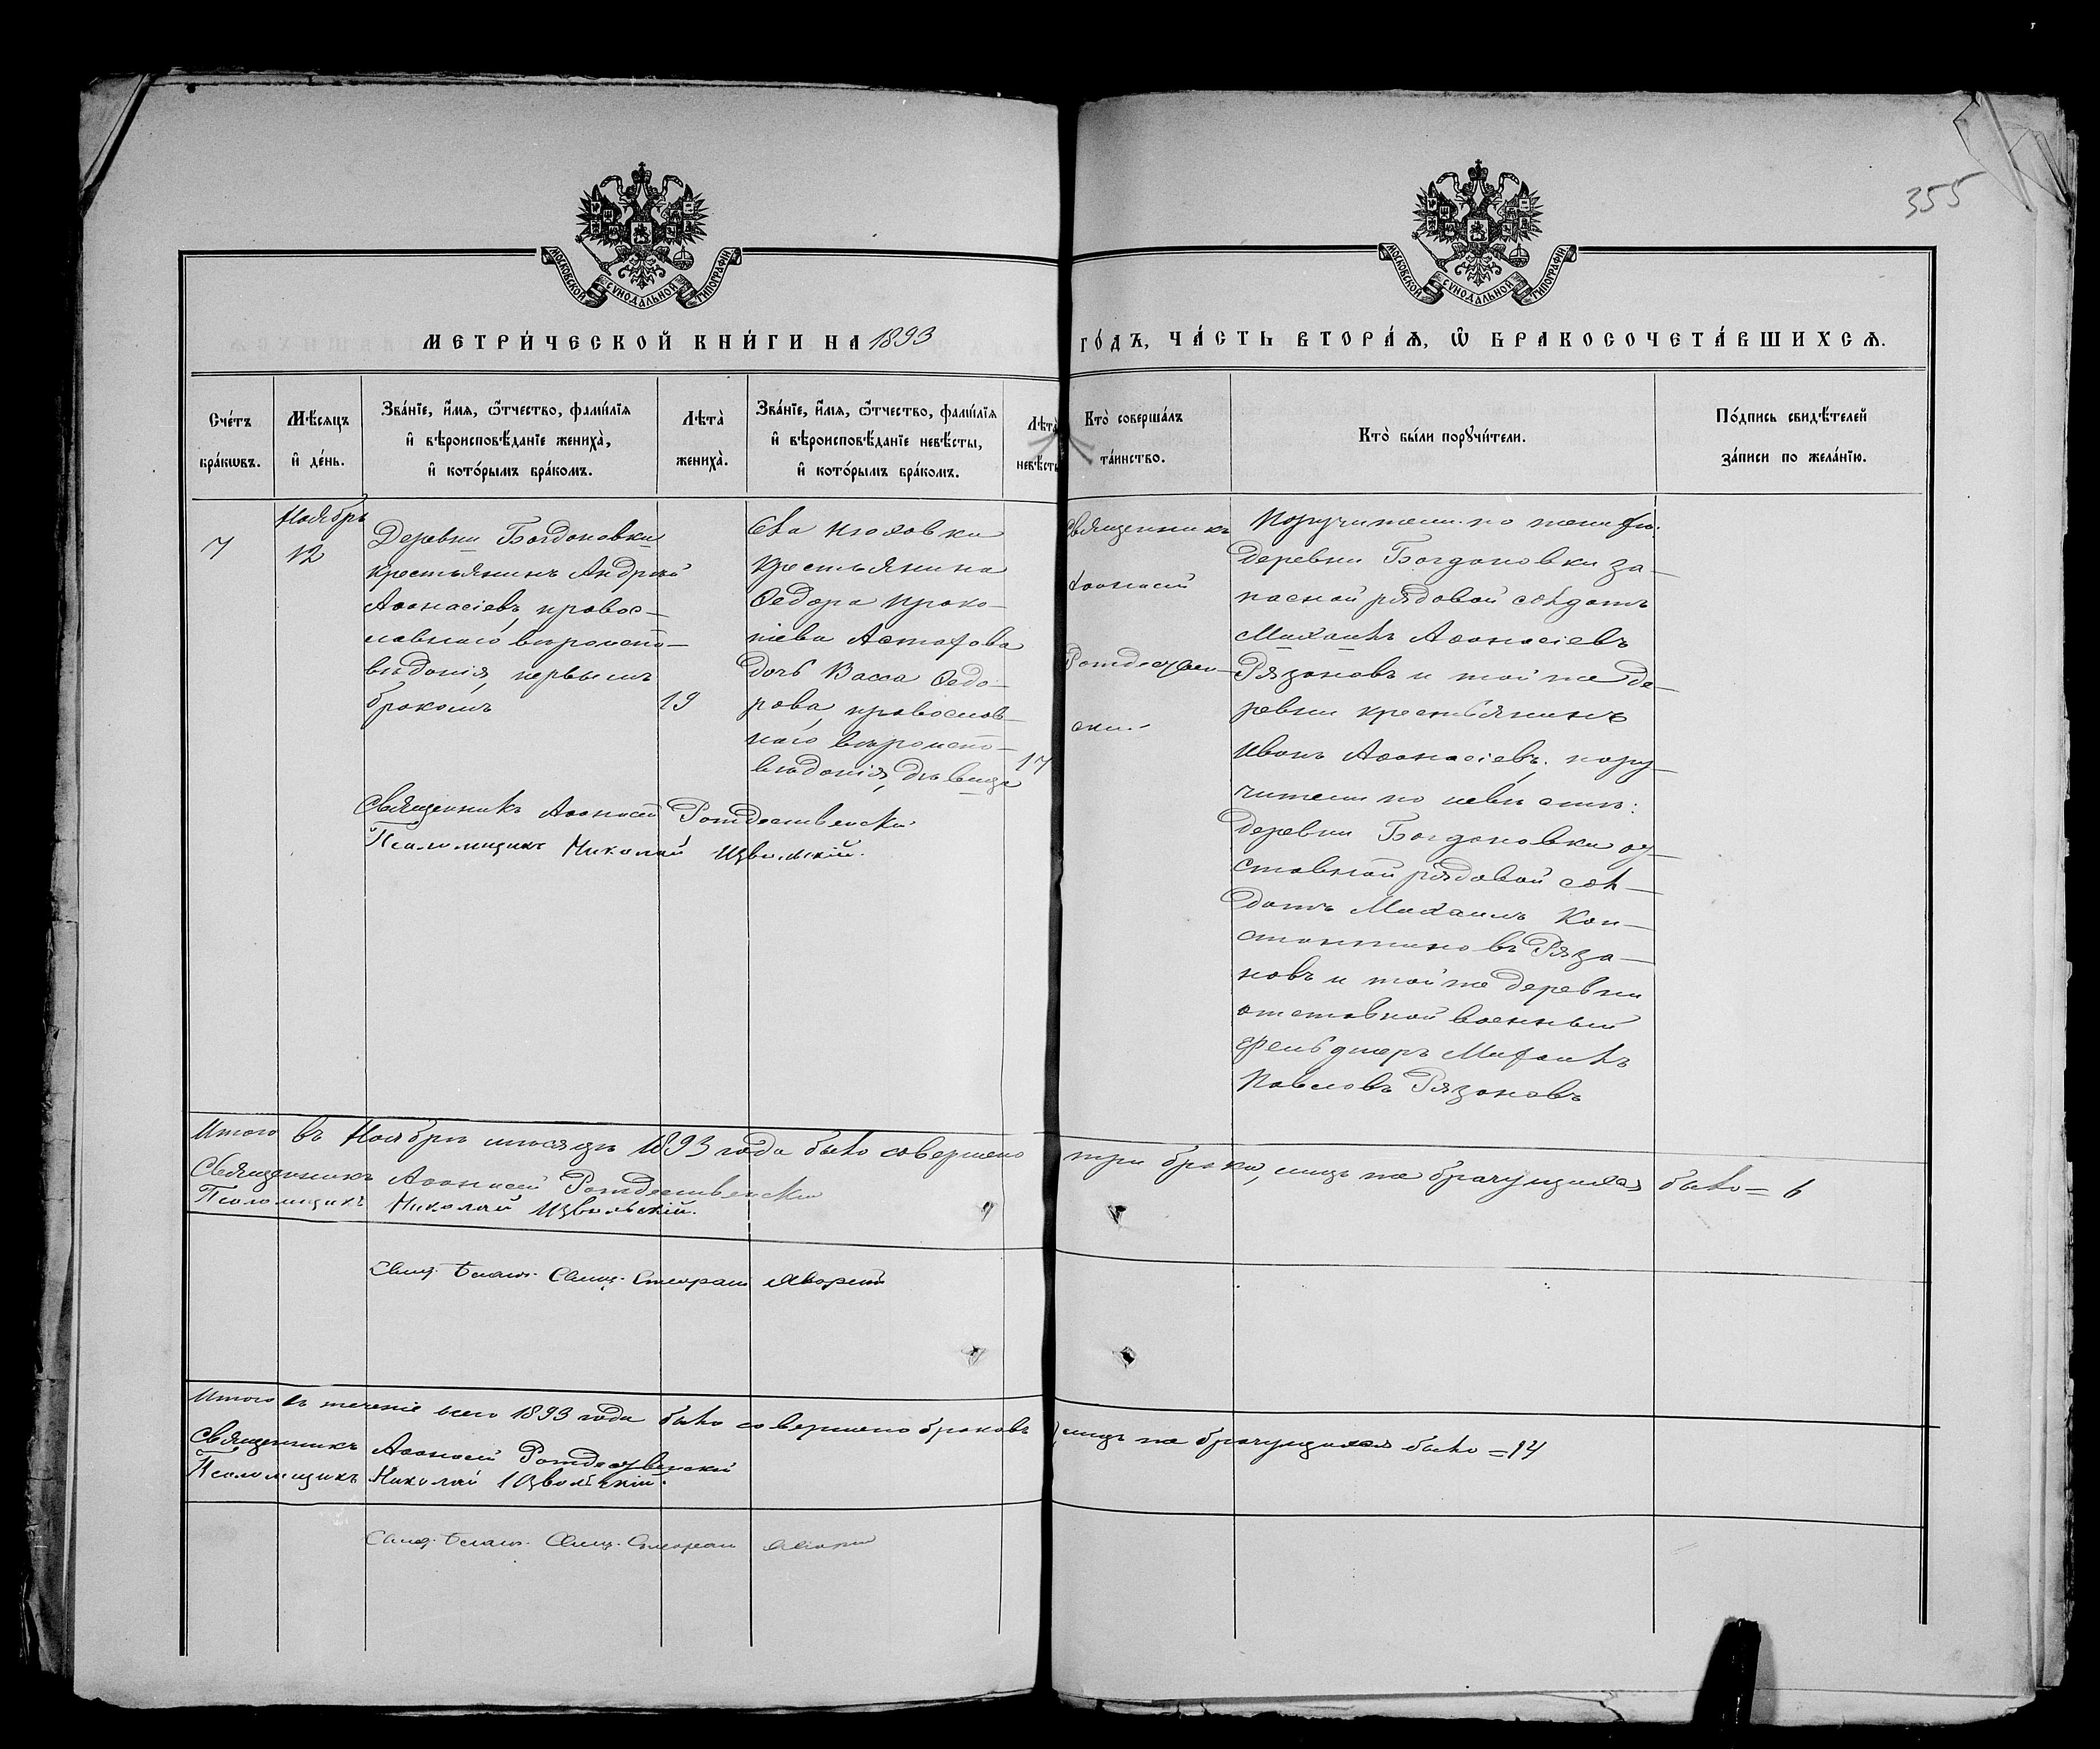 355
МОСКОВСКОЙ СУНОДАЛЬНОЙ ТИПОГРАФІИ
МОСКОВСКОЙ СУНОДАЛЬНОЙ ТИПОГРАФІИ
МЕТРИ́ЧЕСКОЙ КНИ́ГИ НА 1893 ГО́ДЪ, ЧА́СТЬ ВТОРА́Ѧ, Ѡ БРАКОСОЧЕТА́ВШИХСѦ.
Сче́тъ
бра́кѡвъ.
Мѣ́сѧцъ
и҆ де́нь.
Зва́нїе, и҆́мѧ, ѻ҆́тчество, фами́лїѧ
и҆ вѣроисповѣ́данїе жениха̀,
и҆ кото́рымъ бра́комъ.
Лѣта̀
жениха̀.
Зва́нїе, и҆́мѧ, ѻ҆́тчество, фами́лїѧ
и҆ вѣроисповѣ́данїе невѣ́сты,
и҆ кото́рымъ бра́комъ.
Лѣта̀
невѣ́сты
Кто̀ соверша́лъ
та́инство.
Кто̀ бы́ли порꙋчи́тели.
По́дпись свидѣ́телей
за́писи по жела́нїю.
7
Ноябрь
12
Деревни Богдановки
крестьянинъ Андрей
Аѳанасіевъ, правос-
лавнаго вѣроиспо-
вѣданія, первымъ
бракомъ
19
крестьянина
Ѳедора Проко-
піева Астафова
дочь Васса Ѳедо-
рова, православ-
наго вѣроиспо-
вѣданія, дѣвица
17
Священникъ
Аѳанасій
Рождествен-
скій
Поручители по жениху:
деревни Богдановки за-
пасной рядовой солдатъ
Михаилъ Аѳанасіевъ
Рязановъ и той же де-
ревни крестьянинъ
Иванъ Аѳанасіевъ; пору-
чители по невѣстѣ:
деревни Богдановки от-
ставной рядовой сол-
датъ Михаилъ Кон-
стантиновъ Ряза-
новъ и той же деревни
отставной военный
фельдшеръ Михаилъ
Павловъ Рязановъ
Священникъ Аѳанасій Рождественскій
Псаломщикъ Николай Извольскій.
Итого въ Ноябрѣ мѣсяцѣ 1893 года было совершено три брака, лицъ же брачущихся было = 6
Священникъ Аѳанасій Рождественскій
Псаломщикъ Николай Извольскій.
Итого въ теченіе всего 1893 года было совершено браковъ 7, лицъ же брачущихся было = 14
Священникъ Аѳанасій Рождественскій
Псаломщикъ Николай Извольскій.